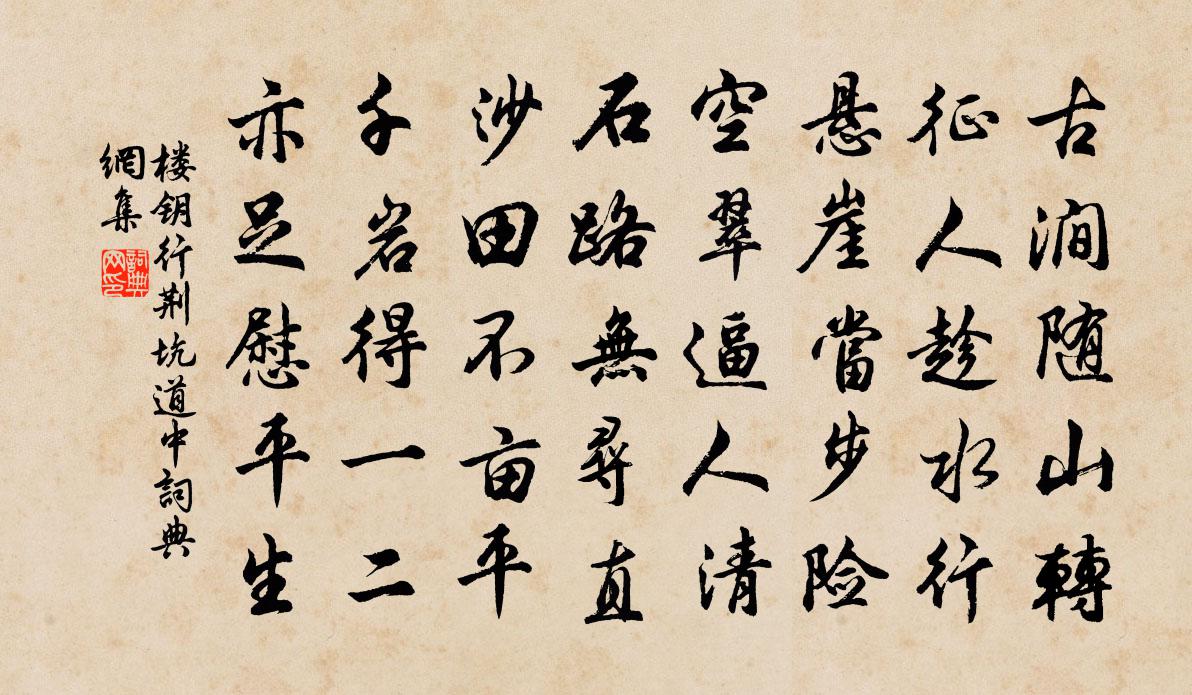 古涧随山轉
征人趁水行
悬崖當步险
空翠逼人清
石路無尋直
沙田不亩平
千岩得一二
亦足慰平生
楼钥行荆坑道中詞典
網集
詞典
网印